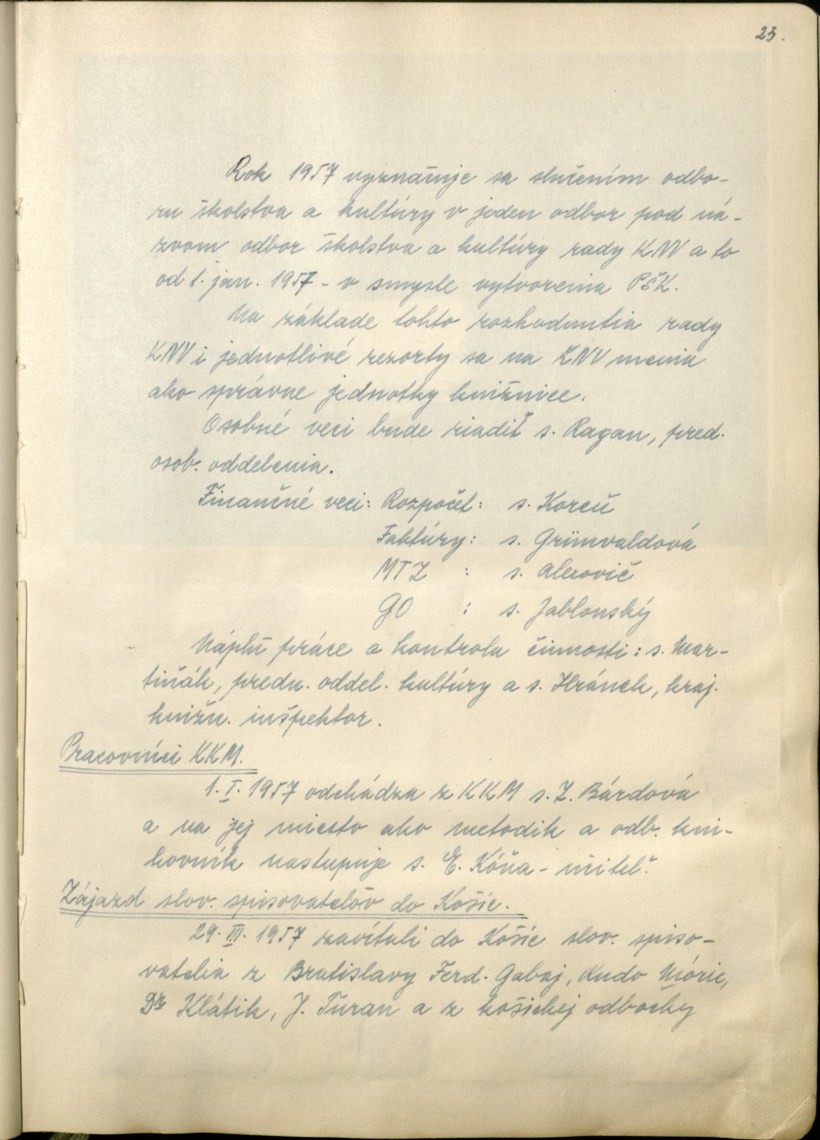 23.
Rok 1957 vyznačuje sa slučením odbo-
ru školstva a kultúry v jeden odbor pod ná-
zvom odbor školstva a kultúry rady KNV a to
od 1. jan. 1957 - v smysle vytvorenia PŠK.
Na základe tohto rozhodnutia rady
KNV i jednotlivé rezorty sa na KNV menia
ako správne jednotky knižnice.
Osobné veci bude riadiť s. Ragan, pred.
osob. oddelenia.
Finančné veci: Rozpočet: s. Koreň
Faktúry: s. Grünvaldová
MTZ : s. Alexovič
GO : s. Jablonský
Náplň práce a kontrola činnosti: s. Mar-
tiňák, predn. oddel. kultúry a s. Hránek, kraj.
knižn. inšpektor.
Pracovníci KKM.
1. I. 1957 odchádza z KKM s. Z. Bárdová
a na jej miesto ako metodik a odb. kni-
hovník nastupuje s. E. Kóňa - učiteľ.
Zájazd slov. spisovateľov do Košíc.
29. III. 1957 zavítali do Košíc slov. spiso-
vatelia z Bratislavy Ferd. Gabaj, Rudo Móric,
Dr Klátik, J. Turan a z košickej odbočky